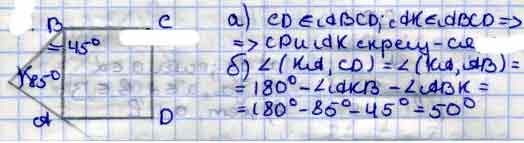 B C
45°
K 85°
A D
а) CD ∈ ABCD; AK ∈ ABCD =>
=> CD и AK скрещ-ся
б) ∠(KA, CD) = ∠(KA, AB) =
= 180° - ∠AKB - ∠ABK =
= 180° - 85° - 45° = 50°